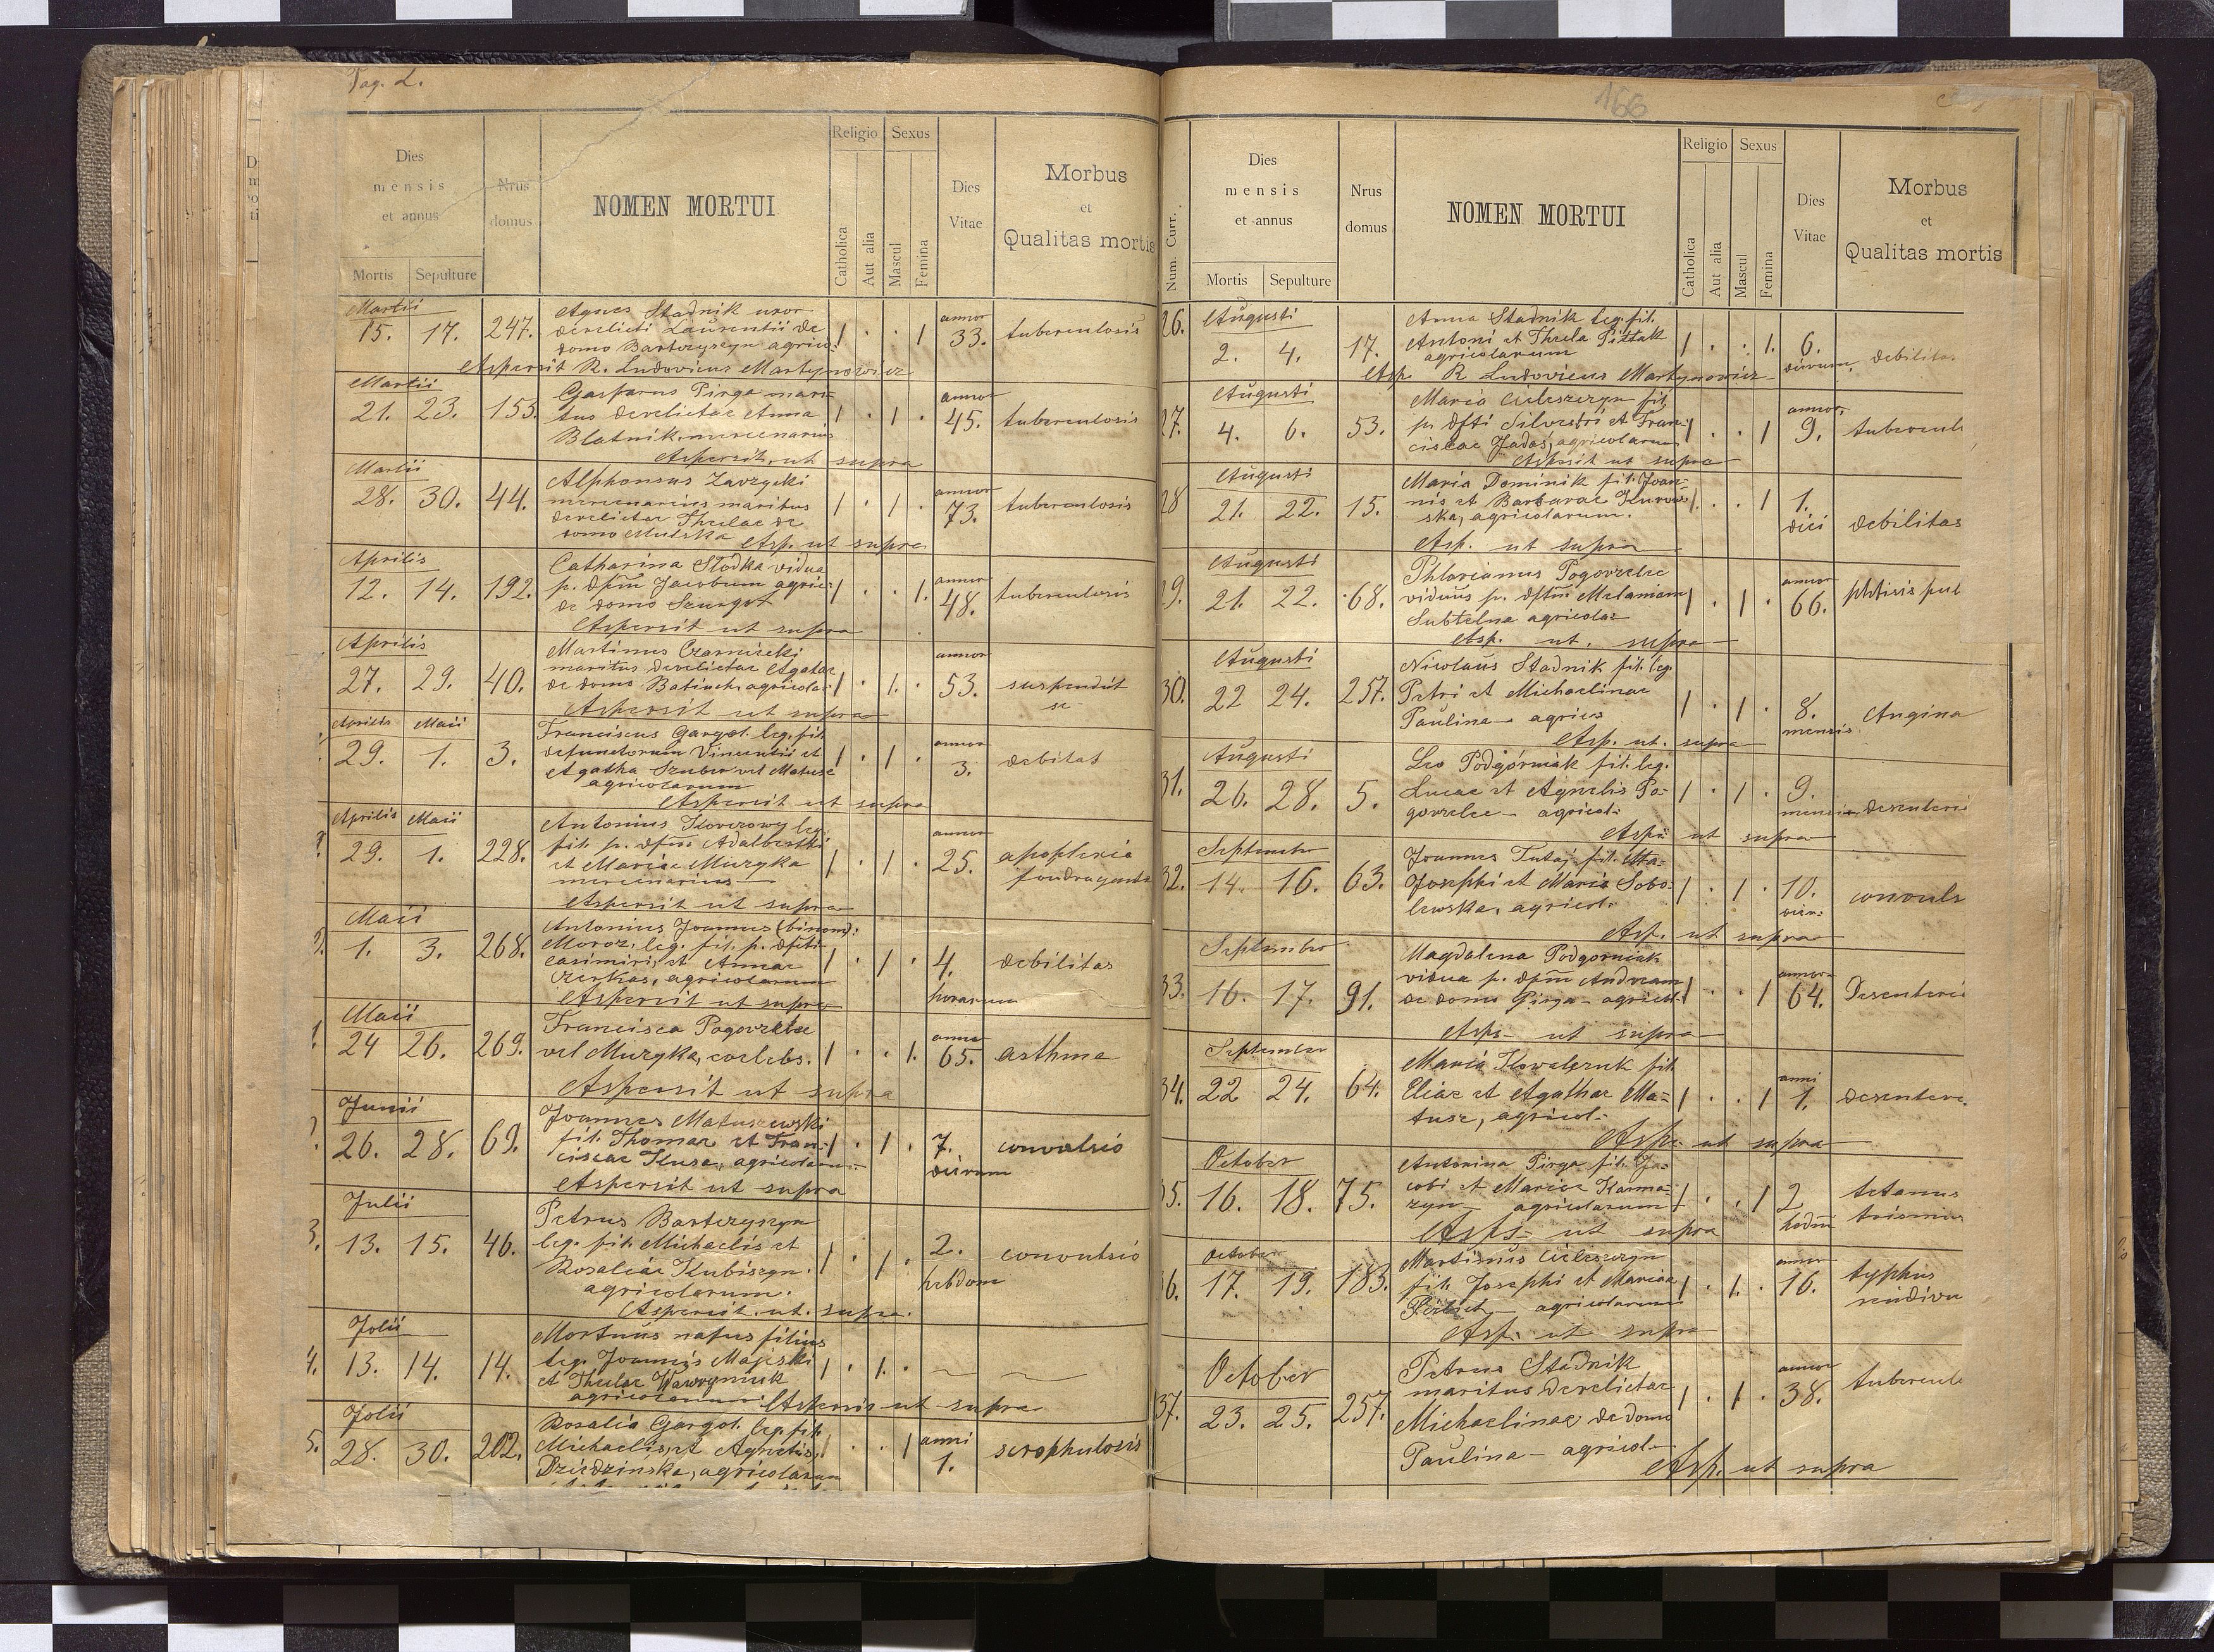 Pag. 2.
Dies
mensis
et annus
Mortis Sepulture
Nrus
domus
NOMEN MORTUI
Religio Sexus
Catholica
Aut alia
Mascul
Femina
Dies
Vitae
Morbus
et
Qualitas mortis
Martii
15. 17. 247. Agnes Stadnik uxor
derelicti Laurentii de
domo Bartczyszyn agrico: 1 . . 1 annor 33. tuberculosis
Aspersit R. Ludovicus Martynowicz
Martii
21. 23. 153. Gasparus Pirga mari-
tus derelictae Anna
Blatnik mercenarius 1 . 1 . annor 45. tuberculosis
Aspersit ut supra
Martii
28. 30. 44. Alphonsus Zarzycki
mercenarius maritus
derelictae Theclae de
domo 1 . 1 . annor 73. tuberculosis
Asp. ut supra
Aprilis
12. 14. 192. Catharina Słódka vidua
p. dftm Jacobum agric:
de domo Szurgot 1 . . 1. annor 48. tuberculosis
Aspersit ut supra
Aprilis
27. 29. 40. Martinus Czarniecki
maritus derelictae Agatae
de domo agricola 1 . 1. . annor 53. suspendit
se
Aspersit ut supra
Aprilis Maii
29. 1. 3. Franciscus Gargol leg. fil.
defunctorum Vincentii et
Agatha Szuber vel Matusz
agricolarum 1 . 1 . annor 3. debilitas
Aspersit ut supra
Aprilis Maii
29. 1. 228. Antonius leg.
fil. p. dftm Adalberthi
et Mariae Muzyka
mercenarius 1 . 1 . annor 25. apoplexia
Aspersit ut supra
Maii
1. 3. 268. Antonius Joannes (binom):
Moroz, leg. fil. p. dfti
Casimiri, et Annae
agricolarum 1 . 1 . 4. horarum debilitas
Aspersit ut supra
Maii
24 26. 269. Francisca Pogorzelec
vel Muzyka, coelebs. 1 . . 1. annor 65. asthma
Aspersit ut supra
Junii
26. 28. 69. Joannes Matuszewski
fil. Thomae et Fran-
ciscae agricolarum 1 . 1 . 7. dierum convulsio
Aspersit ut supra
Julii
3. 13. 15. 46. Petrus Bartczyszyn
leg. fil. Michaelis et
Rosaliae Kubiszyn.
agricolarum. 1 . 1 . 2. hebdom convulsio
Aspersit ut supra.
Jolii
4. 13. 14. 14. Mortuus natus filius
leg. Joannis Majeski
et Theclae Wawryniuk
agricolarum 1 . 1. .
Aspersit ut supra
Jolii
5. 28. 30. 202. Rosalia Gargol. leg. fil.
Michaelis, et Agnetis,
Dziedzinska, agricolarum 1 . . 1 anni 1. scrophulosis
166
Num. Curr.
Dies
mensis
et annus
Mortis Sepulture
Nrus
domus
NOMEN MORTUI
Religio Sexus
Catholica
Aut alia
Mascul
Femina
Dies
Vitae
Morbus
et
Qualitas mortis
26. Augusti
2. 4. 17. Anna Stadnik leg. fil.
Antoni et Thecla Pittak
agricolarum 1 . . 1. 6. dierum, debilitas
Asp. R. Ludovicus Martynowicz
27. Augusti
4. 6. 53. Maria Cieleszczyn fil.
p. dfti Silvestri et Fran-
ciscae Jadaś, agricolarum 1 . . 1 annor. 9. tubercul
Aspersit ut supra
28 Augusti
21. 22. 15. Maria Dominik fil. Joan-
nis et Barbarae Kurow-
ska, agricolarum. 1 . . 1 1. diei debilitas
Asp. ut supra
29. Augusti
21. 22. 68. Phlorianus Pogorzelec
viduus p. dftm Melaniam
Subtelna agricola 1 . 1 . annor 66. phtisis pul
Asp. ut. supra
30. Augusti
22 24. 257. Nicolaus Stadnik fil. leg.
Petri et Michaelinae
Paulina — agrico 1 . 1 . 8. mensis Angina
Asp. ut. supra
31. Augusti
26. 28. 5. Leo Podgórniak fil. leg.
Lucae et Agnetis Po-
gorzelec — agricol: 1 . 1 . 9. mensi desenteri
Asp: ut supra
32. Septembr
14. 16. 63. Joannes Tutaj fil.
Josephi et Maria Sobo-
lewska, agricol: 1 . 1 . 10. dier: convuls
Asp. ut supra
33. Septembr
16. 17. 91. Magdalena Podgorniak
vidua p. dftm Andream
de domo Pirga — agricol: 1 . . 1 annor 64. Desenteri
Asp: ut supra
34. September
22 24. 64. Maria Kowalczuk fil.
Eliae et Agathae Ma-
tusz, agricol: 1 . . 1 anni 1. desenter.
Asp: ut supra
35. October
16. 18. 75. Antonina Pirga fil. Ja-
cobi et Mariae Karma-
zyn — agricolarum 1 . . 1 2 hedm tetanus
trismus
Asp: ut supra
36. October
17. 19. 183. Martinus Cieleszczyn
fil. Josephi et Mariae
agricolarum 1 . 1. . annor 16. typhus
Asp. ut supra
37. October
23. 25. 257. Petrus Stadnik
maritus derelictae
Michaelinae de domo
Paulina — agricol — 1 . 1 . annor 38. tubercul
Asp. ut supra